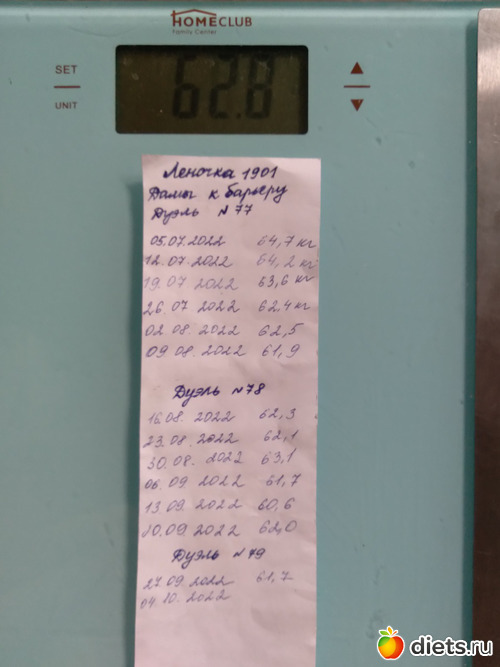 HOMECLUB
Family Center
SET
62.8
UNIT
Леночка 1901
Дамы к барьеру
Дуэль №77
05.07.2022 64,7 кг
12.07.2022 64,2 кг
19.07 2022 63,6 кг
26.07 2022 62.4 кг
02.08.2022 62,5
09.08.2022 61,9
Дуэль №78
16.08. 2022 62,3
23.08.2022 62,1
30.08. 2022 63,1
06.09 2022 61,7
13.09 2022 60,6
20.09 2022 62,0
Дуэль №79
27.09.2022 61,7
04.10.2022
diets.ru